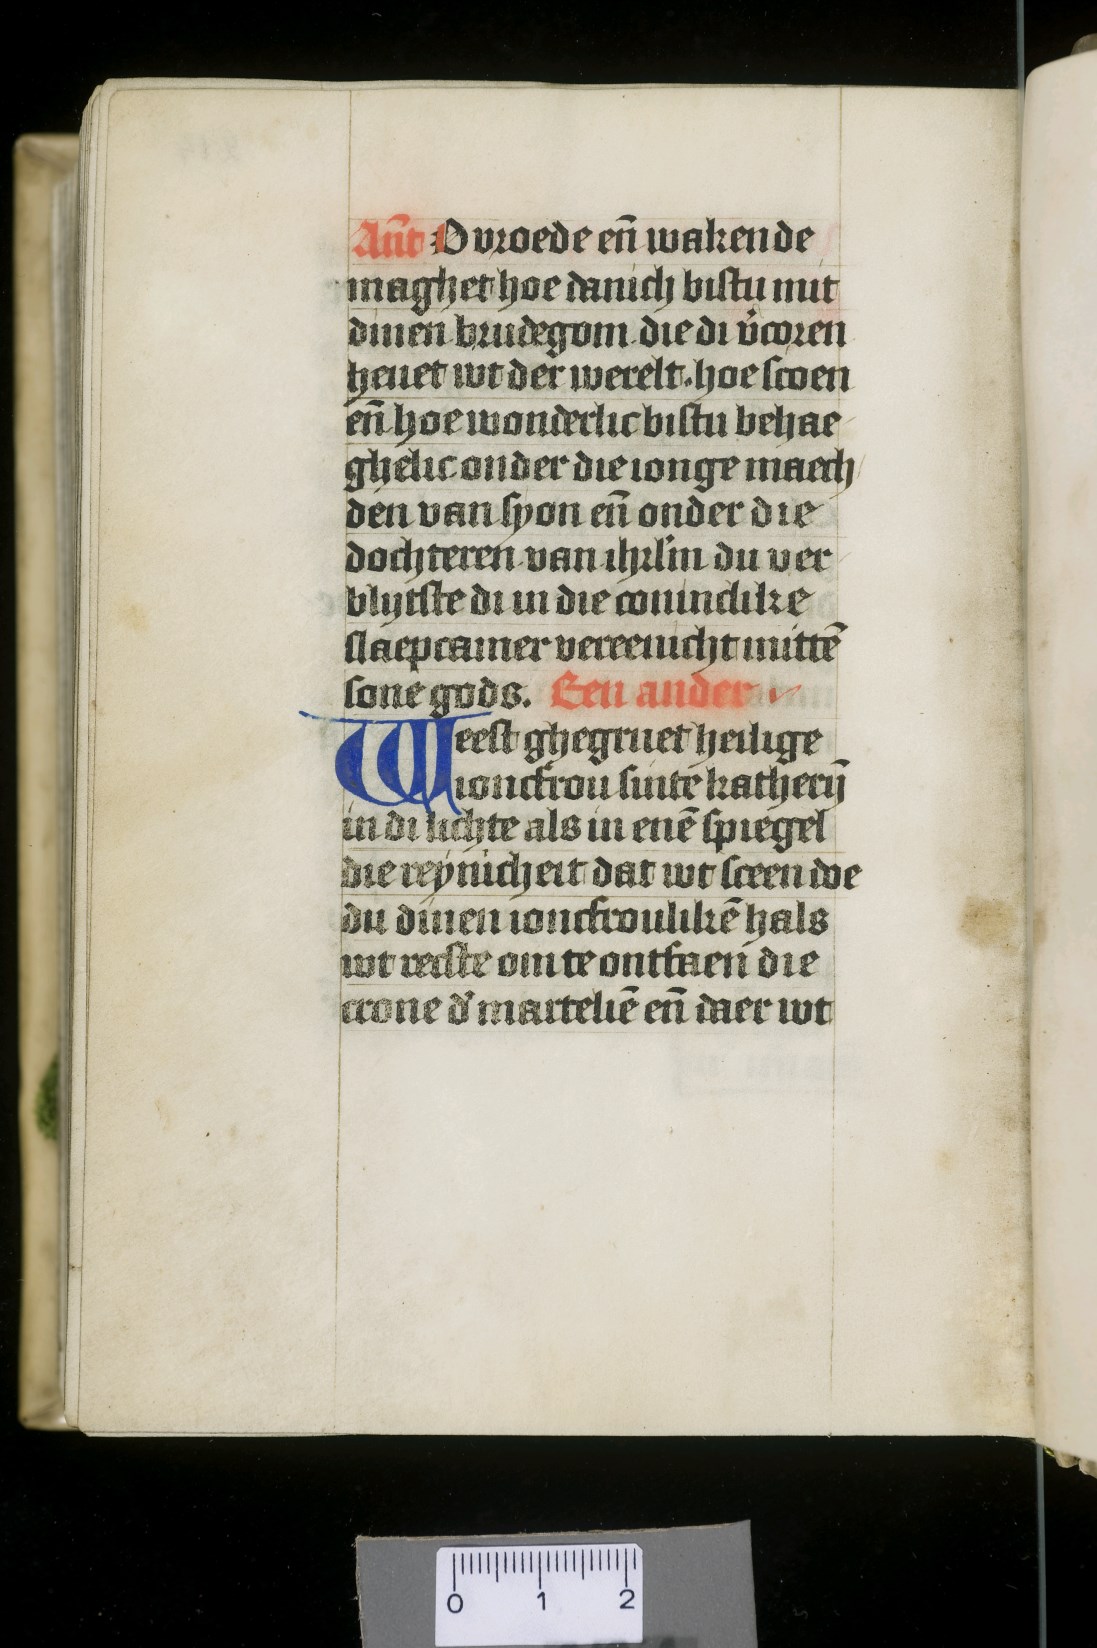 Ant̄ O vroede en̄ wakende
maghet hoe danich bistu mit
dinen brudegom die di v̓coren
heuet wt der werelt. hoe scoen
en̄ hoe wonderlic bistu behae
ghelic onder die ionge maech
den van syon en̄ onder die
dochteren van ihrl̓m du ver
blijtste di in die conincklike
slaepcamer vereenicht mittē
sone gods. Een ander
Weest ghegruet heilige
ioncfrou sinte katherÿ
in di lichte als in enē spiegel
die reynicheit dat wt sceen doe
du dinen ioncfroulikē hals
wt recste om te ontfaen die
crone d̓ marteliē en̄ daer wt
0 1 2